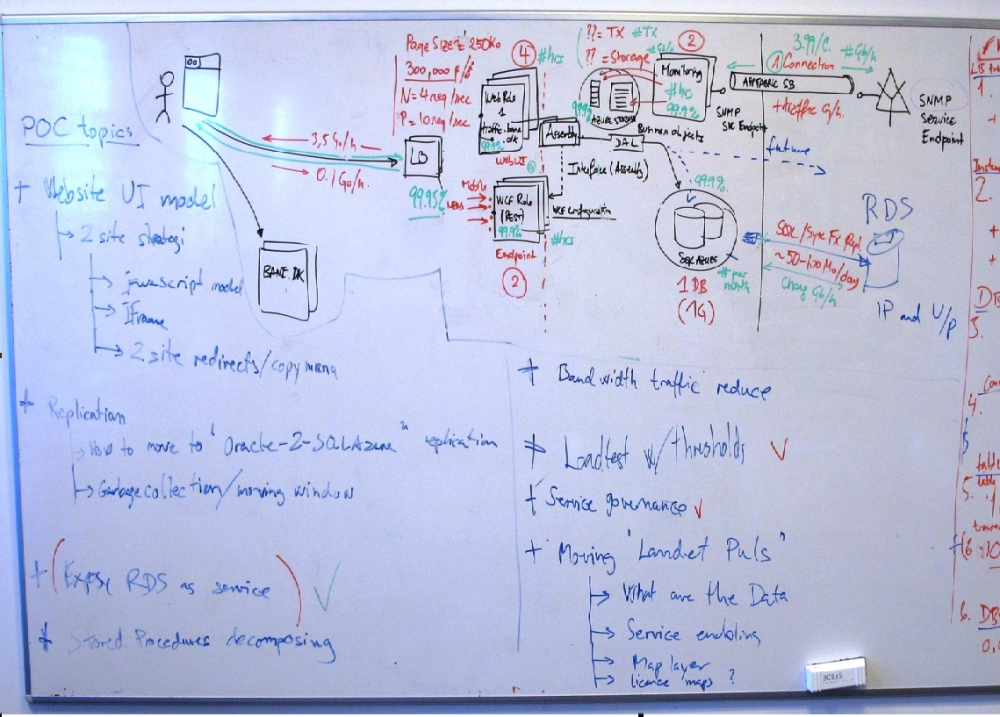 POC topics
+ Website UI model
2 site strategi
javascript model
IFrame
2 site redirects/copy mana
+ Replication
How to move to "Oracle-2-SQLAzure" replication
Garbage collection/moving window
+ (Expose RDS as service)
+ Stored Procedures decomposing
BANE.DK
3,5 Go/h
0.1 Go/h.
LB
99.95%
Page Size = 250Ko
300,000 p/
N=4 req/sec
P=10 req/sec
4
#hrs
Web Role
1
99.9%
WebUI
Mobile
WCF Role
(REST)
99.9%
Endpoint
2
#hrs
Assembly
Interface (Assembly)
WCF Configuration
?? = TX #TX
?? = Storage #Gb/h
99.9%
AZURE STORAGE
DAL
Business objects
2
Monitoring
#hrs
99.9%
SNMP
Endpoint
future
99.9%
SQL AZURE
1 DB
(1G)
#per
month
3.99/C. #Gb/h
1 Connection
APPFABRIC SB
+traffic G/h
SNMP
Service
Endpoint
RDS
SQL/Sync Fx Repl.
~50-100 Mo/day
Gb/h
IP and U/P
+ Bandwidth traffic reduce
+ Loadtest w/thresholds ✓
+ Service governance ✓
+ Moving "Landet Puls"
What are the Data
Service enabling
Map layer
licence maps ?
1.
2.
+
+
DB
3.
4.
5.
6.
DB